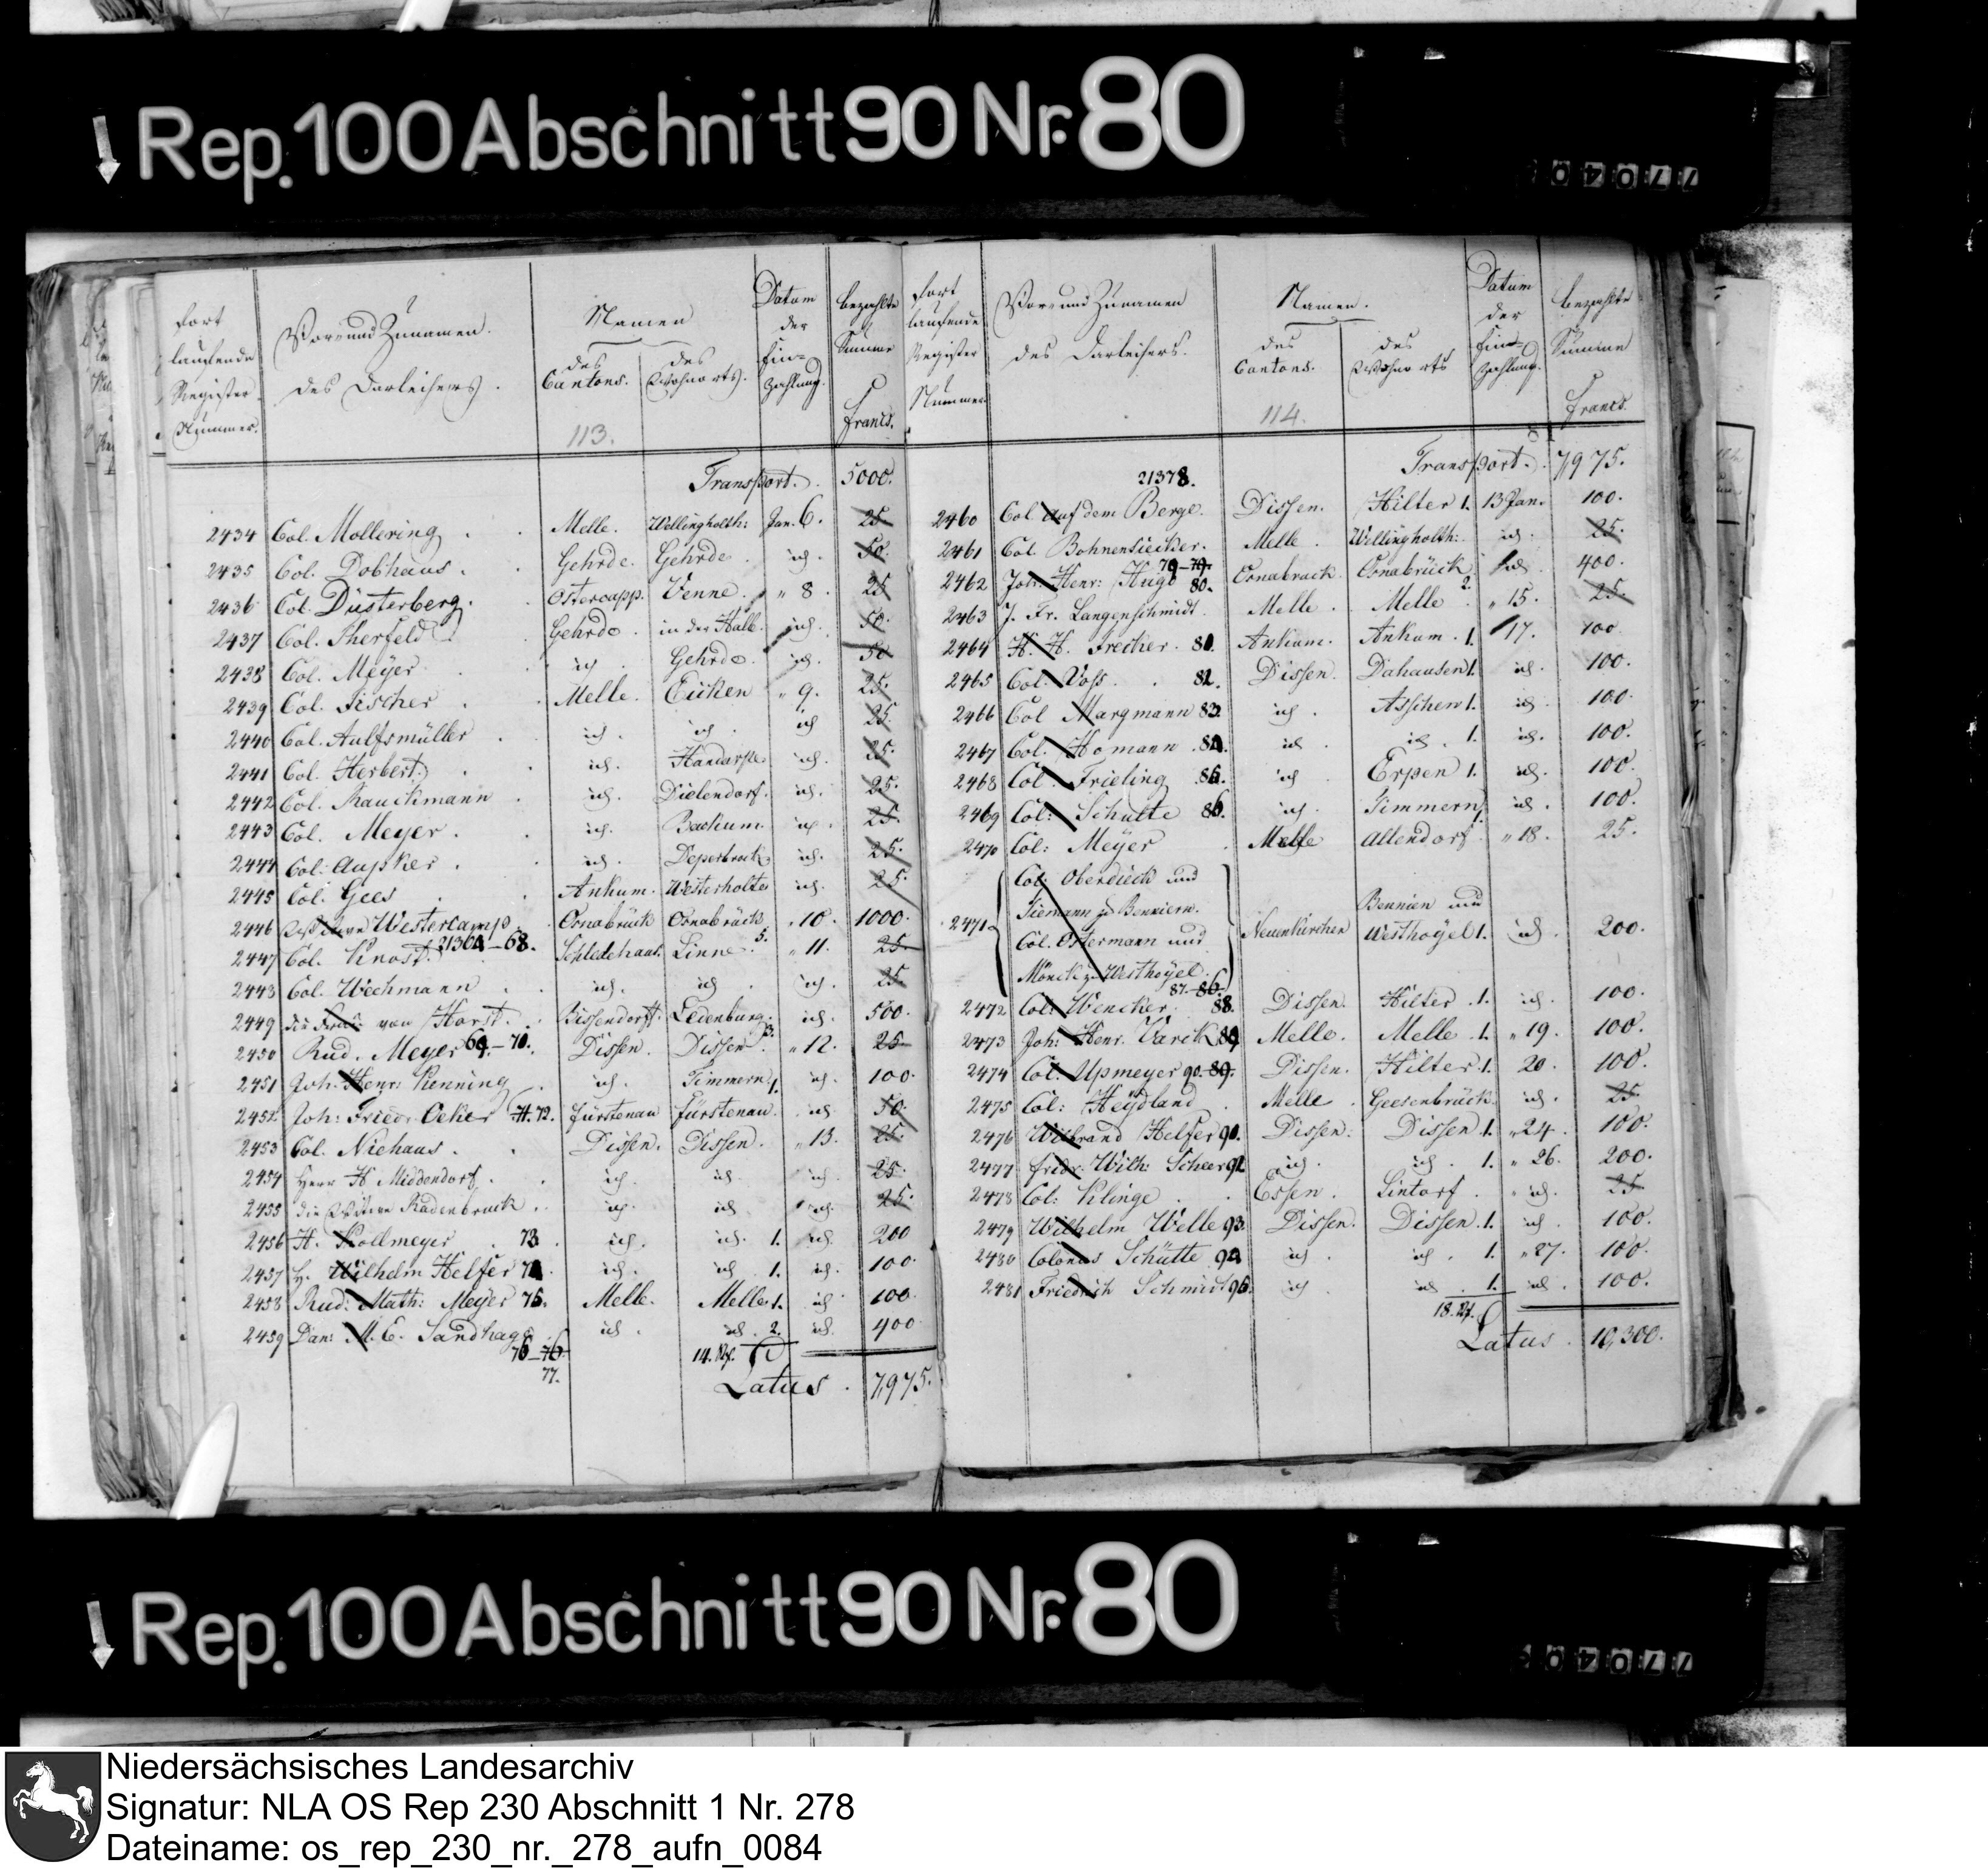 Rep. 100 Abschnitt 90 Nr. 80
77040
Fort laufende Register Nummer.
Vor- und Zunamen des Darleihers.
Namen
des Cantons.
des Wohnorts.
Datum der Einzahlung.
bezahlte Summe
Francs.
113.
Transport. 5000.
2434 Col. Mollering Melle. Wellingholth: Jan. 6. 25
2435 Col. Dobhaus. Gehrde. Gehrde id. 50.
2436 Col. Düsterberg. Ostercapp. Venne. " 8. 25
2437 Col. Gehrde in der id. 50.
2438 Col. Meyer id. Gehrde. id. 50
2439 Col. Fischer Melle. Eicken " 9. 25.
2440 Col. Aulfsmüller id. id. id 25.
2441 Col. Herbert. id. id. 25.
2442 Col. Rauckmann id. Dielendorf. id. 25.
2443 Col. Meyer. id. Backum. id. 25.
2444 Col: Aupker. id. id. 25.
2445 Col. Gees Ankum. Westerholte id. 25.
2446 Westercamp Osnabrück Osnabrück " 10. 1000.
21364–68. 5.
2447 Col. Knost. Schledehaus. Linne. " 11. 25
2448 Col. Wechmann id. id. id. 25
2449 die Frau von Horst. Bissendorff. Ledenburg. id. 500.
69.–70.
2450 Rud. Meyer Dissen. Dissen. " 12. 25
2451 Joh. Henr: Kenning id. Timmern 1. id. 100.
2452 Joh: Fried. Oeker 72. Fürstenau Fürstenau. id 50.
2453 Col. Niehaus. Dissen. Dissen. " 13. 25.
2454 Herr H Middendorf. id. id. id. 25.
2455 die Wittwe Radenbrock. id. id id. 25.
2456 H. Kollmeyer 73. id. id. 1. id. 200
2457 H. Wilhelm Helfer 74. id. id. 1. id. 100.
2458 Rud: Math: Meyer 75. Melle. Melle 1. id 100.
2459 Dan: M. E. Sandhage id. id. 2. id. 400
76–76.
77.
14.
Latus. 7,975.
Fort laufende Register Nummer
Vor- und Zunamen des Darleihers.
Namen.
des Cantons.
des Wohnorts
Datum der Einzahlung.
bezahlte Summe
Francs.
114.
Transport. 7,975.
21378.
2460 Col auf dem Berge. Dissen. Hilter 1. 13 Jan. 100.
2461 Col. Bohnensiecker. Melle. Wellingholth: id. 25.
79–79.
2462 Joh: Henr: Hugo 80. Osnabrück. Osnabrück id. 400.
2.
2463 J. Fr. Langenschmidt. Melle. Melle " 15. 25.
2464 H. H. Frecker. 81. Ankum. Ankum. 1. " 17. 100
2465 Col. Voss. 82. Dissen. Dahausen 1. id. 100.
2466 Col Margmann 83. id. Asschen 1. id. 100.
2467 Col. Homann 84. id id. 1. id. 100.
2468 Col. Frieling 85. id Erpen 1. id. 100.
2469 Col: Schulte 86. id Timmern id. 100.
2470 Col: Meyer Melle Altendorf " 18. 25.
Col. Oberdieck und
Tiemann zu Bennien.
2471 Col. Ostermann und Neuenkirchen Bennien und Westhoyel 1. id. 200.
Mönck zu Westhoyel.
87.–86.
2472 Col: Wencker. 88. Dissen. Hilter. 1. id. 100.
2473 Joh: Henr. Varck 89 Melle. Melle. 1. " 19. 100.
2474 Col. Upmeyer 90. 89. Dissen. Hilter. 1. 20. 100.
2475 Col: Heydland Melle. Gesenbrück. id. 25.
2476 Wilbrand Helfer 90. Dissen. Dissen 1. " 24. 100.
2477 Fridr. Wilh: Scheer 92 id. id. 1. " 26. 200.
2478 Col: Klinge Essen. Lintorf. " id. 25
2479 Wilhelm Welle 93. Dissen. Dissen. 1. id. 100.
2480 Colonus Schütte 94 id id. 1. " 27. 100.
2481 Friedrich Schmidt 95. id id. 1. id. 100.
18.
Latus. 10,300.
Rep. 100 Abschnitt 90 Nr. 80
77040
Niedersächsisches Landesarchiv
Signatur: NLA OS Rep 230 Abschnitt 1 Nr. 278
Dateiname: os_rep_230_nr._278_aufn_0084